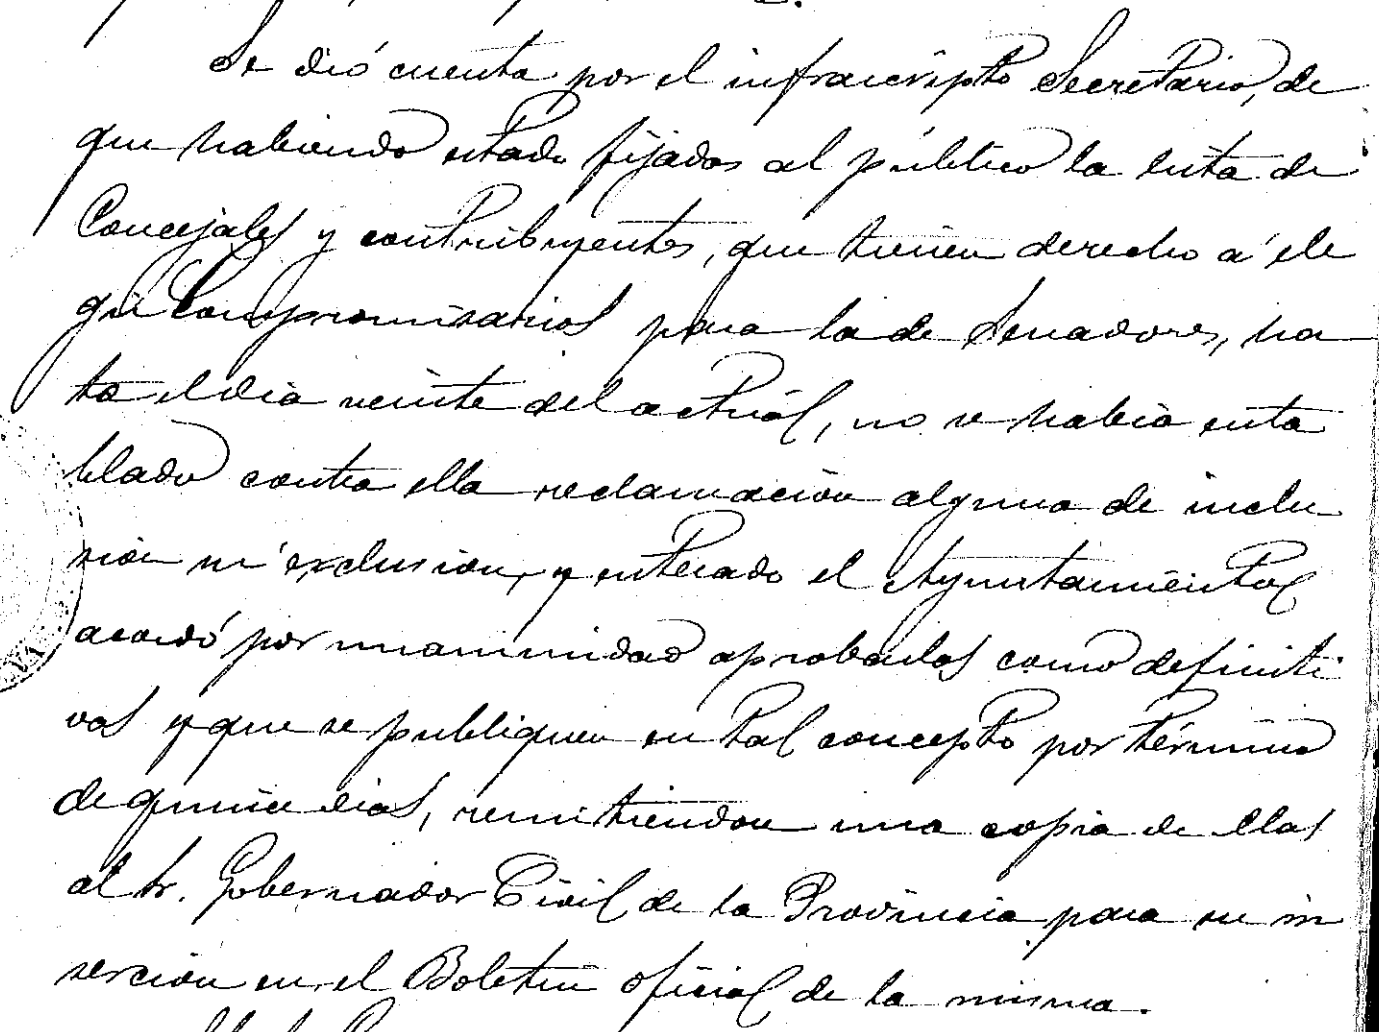 Se dió cuenta por el infraescripto Secretario, de
que habiendo estado fijadas al público la lista de
Concejales y contribuyentes, que tienen derecho á ele
gir Compromisarios para la de Senadores, has
ta el dia veinte del actual, no se habia enta
blado contra ella reclamación alguna de inclu
sión ni exclusion, y enterado el Ayuntamiento
acordó por unanimidad aprobarlas como definiti
vas y que se publiquen en tal concepto por término
de quince dias, remitiendose una copia de ellas
al Sr. Gobernador Civil de la Provincia para su in
serción en el Boletin oficial de la misma.